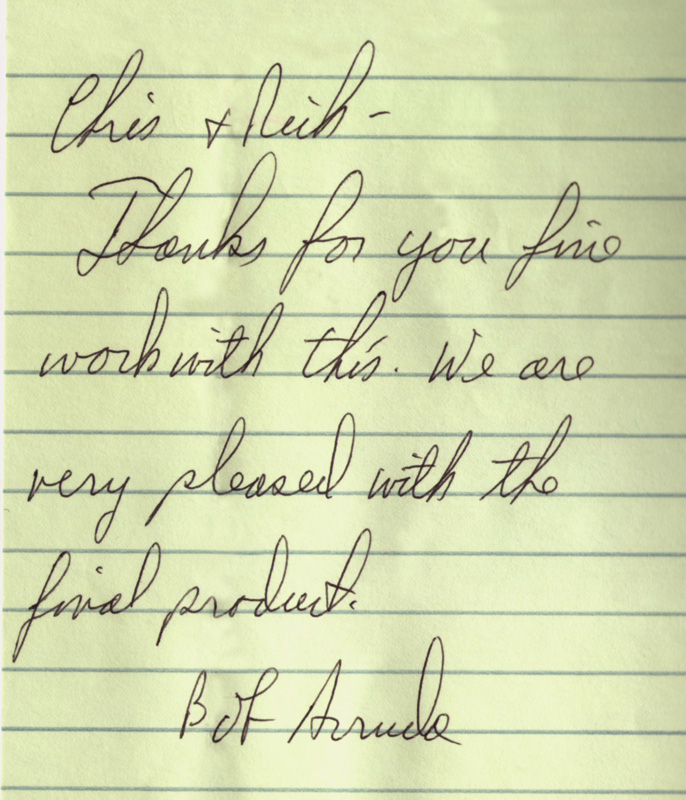 Chris + Rich -
Thanks for you fine
work with this. We are
very pleased with the
final product.
Bob Arruda